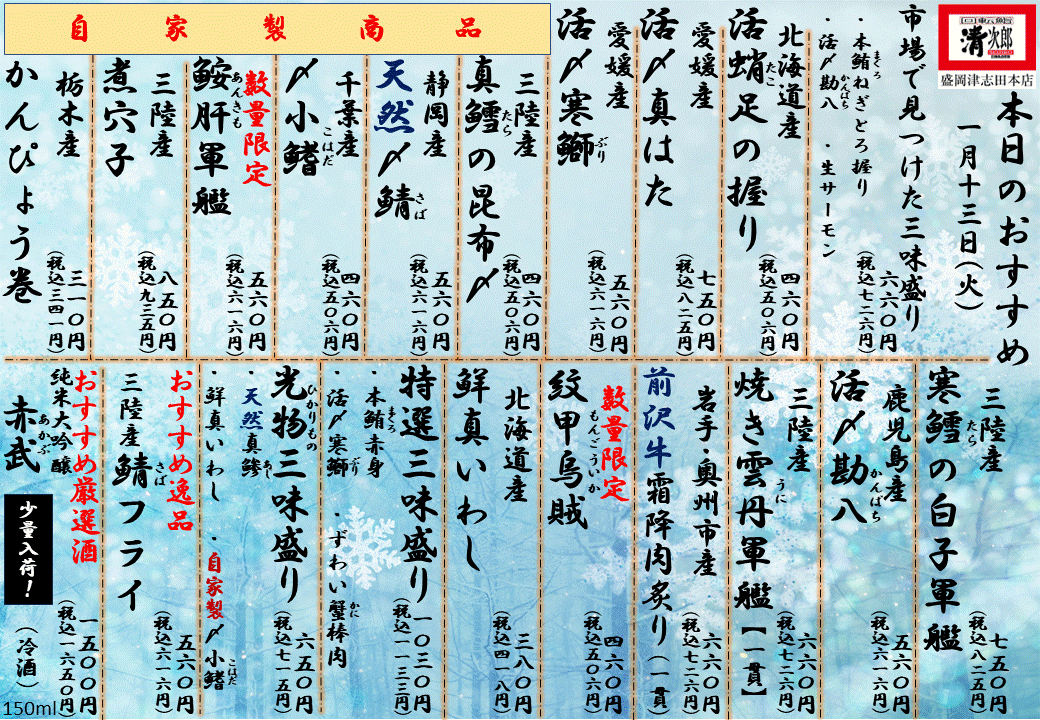 回転鮨
清次郎
盛岡津志田本店
本日のおすすめ
一月十三日(火)
市場で見つけた三味盛り
・本鮪ねぎとろ握り
まぐろ
・活〆勘八
かんぱち
・生サーモン
六六〇円
(税込七二六円)
北海道産
活蛸足の握り
たこ
四六〇円
(税込五〇六円)
愛媛産
活〆真はた
七五〇円
(税込八二五円)
愛媛産
活〆寒鰤
ぶり
五六〇円
(税込六一六円)
自家製商品
三陸産
真鱈の昆布〆
たら
四六〇円
(税込五〇六円)
静岡産
天然〆鯖
さば
五六〇円
(税込六一六円)
千葉産
〆小鰭
こはだ
四六〇円
(税込五〇六円)
数量限定
鮟肝軍艦
あんきも
五六〇円
(税込六一六円)
三陸産
煮穴子
八五〇円
(税込九三五円)
栃木産
かんぴょう巻
三一〇円
(税込三四一円)
三陸産
寒鱈の白子軍艦
たら
七五〇円
(税込八二五円)
鹿児島産
活〆勘八
かんぱち
五六〇円
(税込六一六円)
三陸産
焼き雲丹軍艦【一貫】
うに
六六〇円
(税込七二六円)
岩手・奥州市産
前沢牛霜降肉炙り(一貫)
六六〇円
(税込七二六円)
数量限定
紋甲烏賊
もんごういか
四六〇円
(税込五〇六円)
北海道産
鮮真いわし
三八〇円
(税込四一八円)
特選三味盛り
・本鮪赤身
まぐろ
・活〆寒鰤
ぶり
・ずわい蟹棒肉
かに
一〇三〇円
(税込一一三三円)
光物三味盛り
ひかりもの
・天然真鯵
あじ
・鮮真いわし
・自家製〆小鰭
こはだ
六五〇円
(税込七一五円)
おすすめ逸品
三陸産鯖フライ
さば
五六〇円
(税込六一六円)
おすすめ厳選酒
純米大吟醸
赤武
あかぶ
少量入荷!
一五〇〇円
(税込一六五〇円)
(冷酒)
150ml